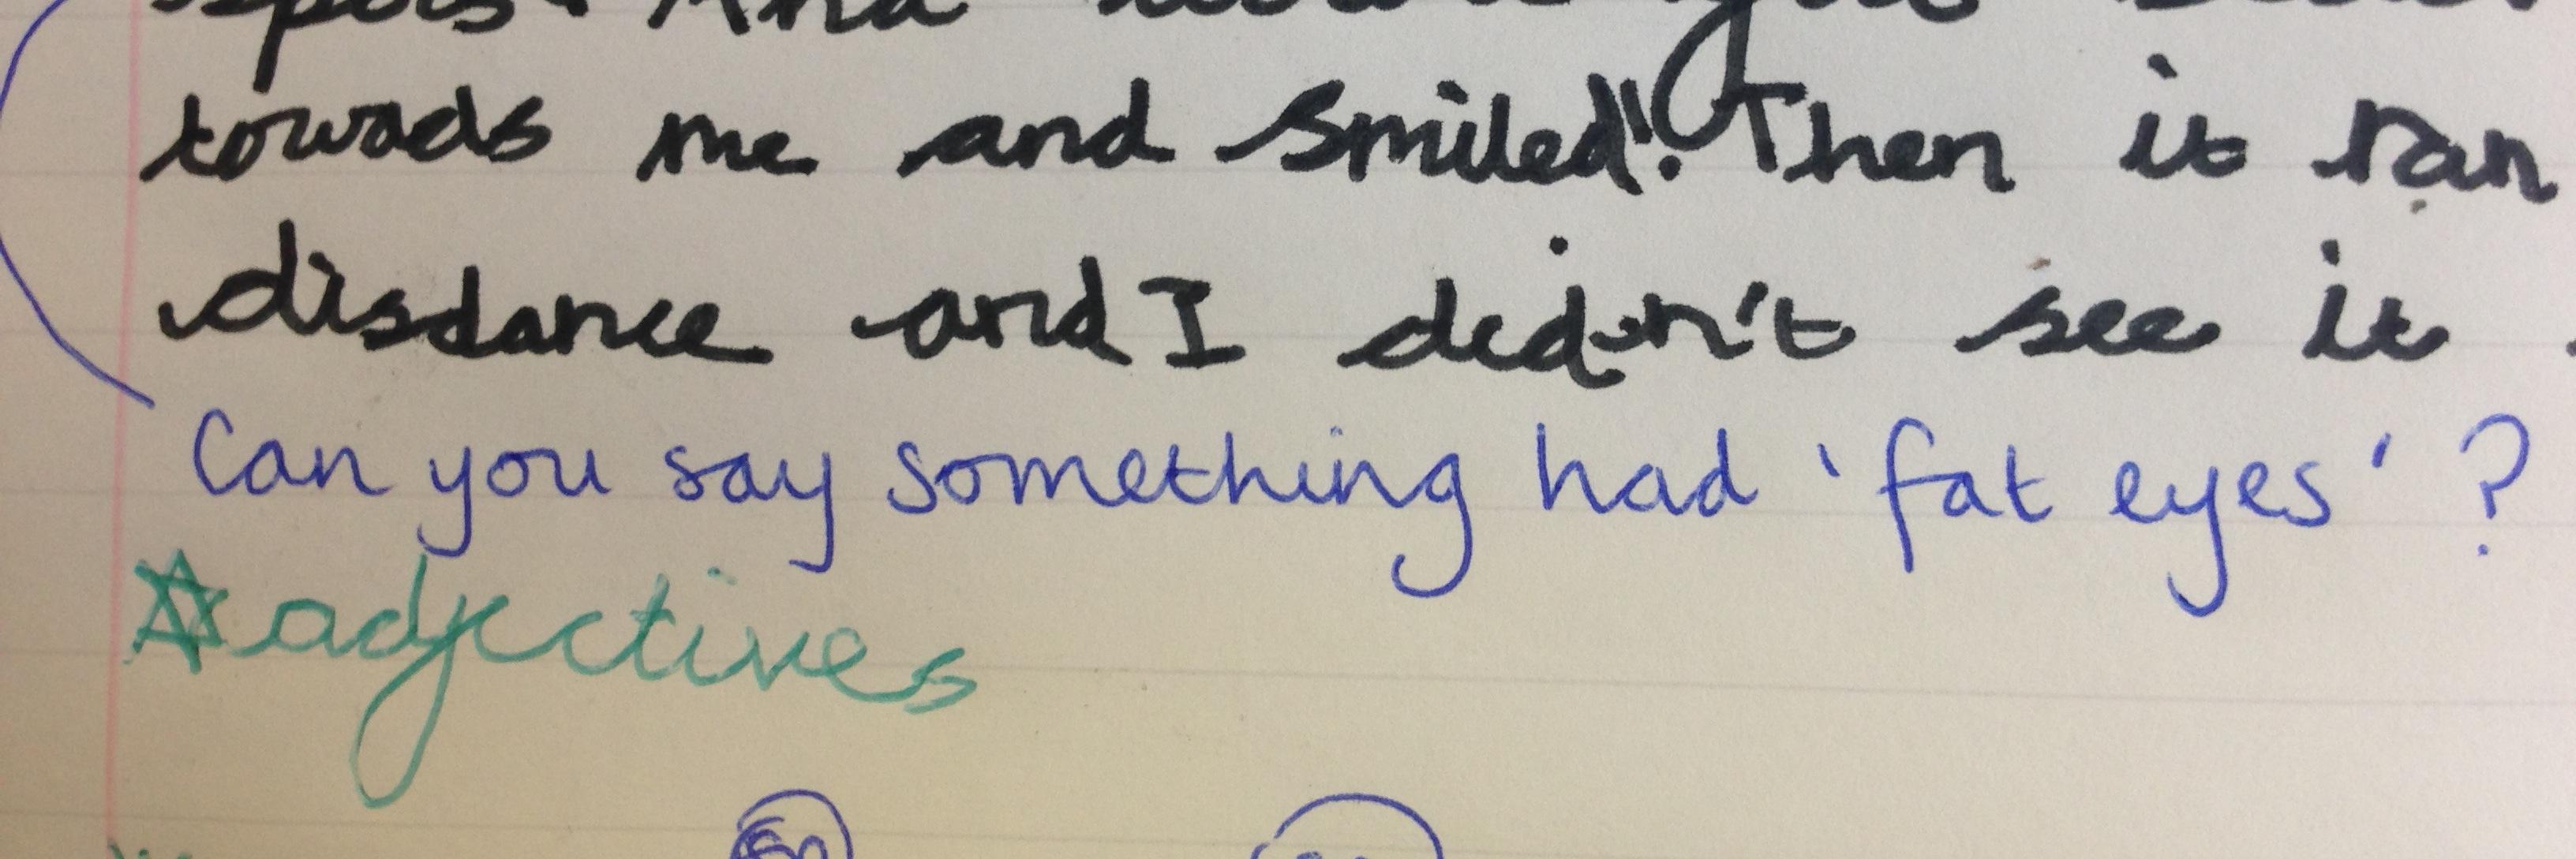 And
towads me and smiled"! Then it ran
disdance and I dedn't see it
Can you say something had 'fat eyes'?
adjectives